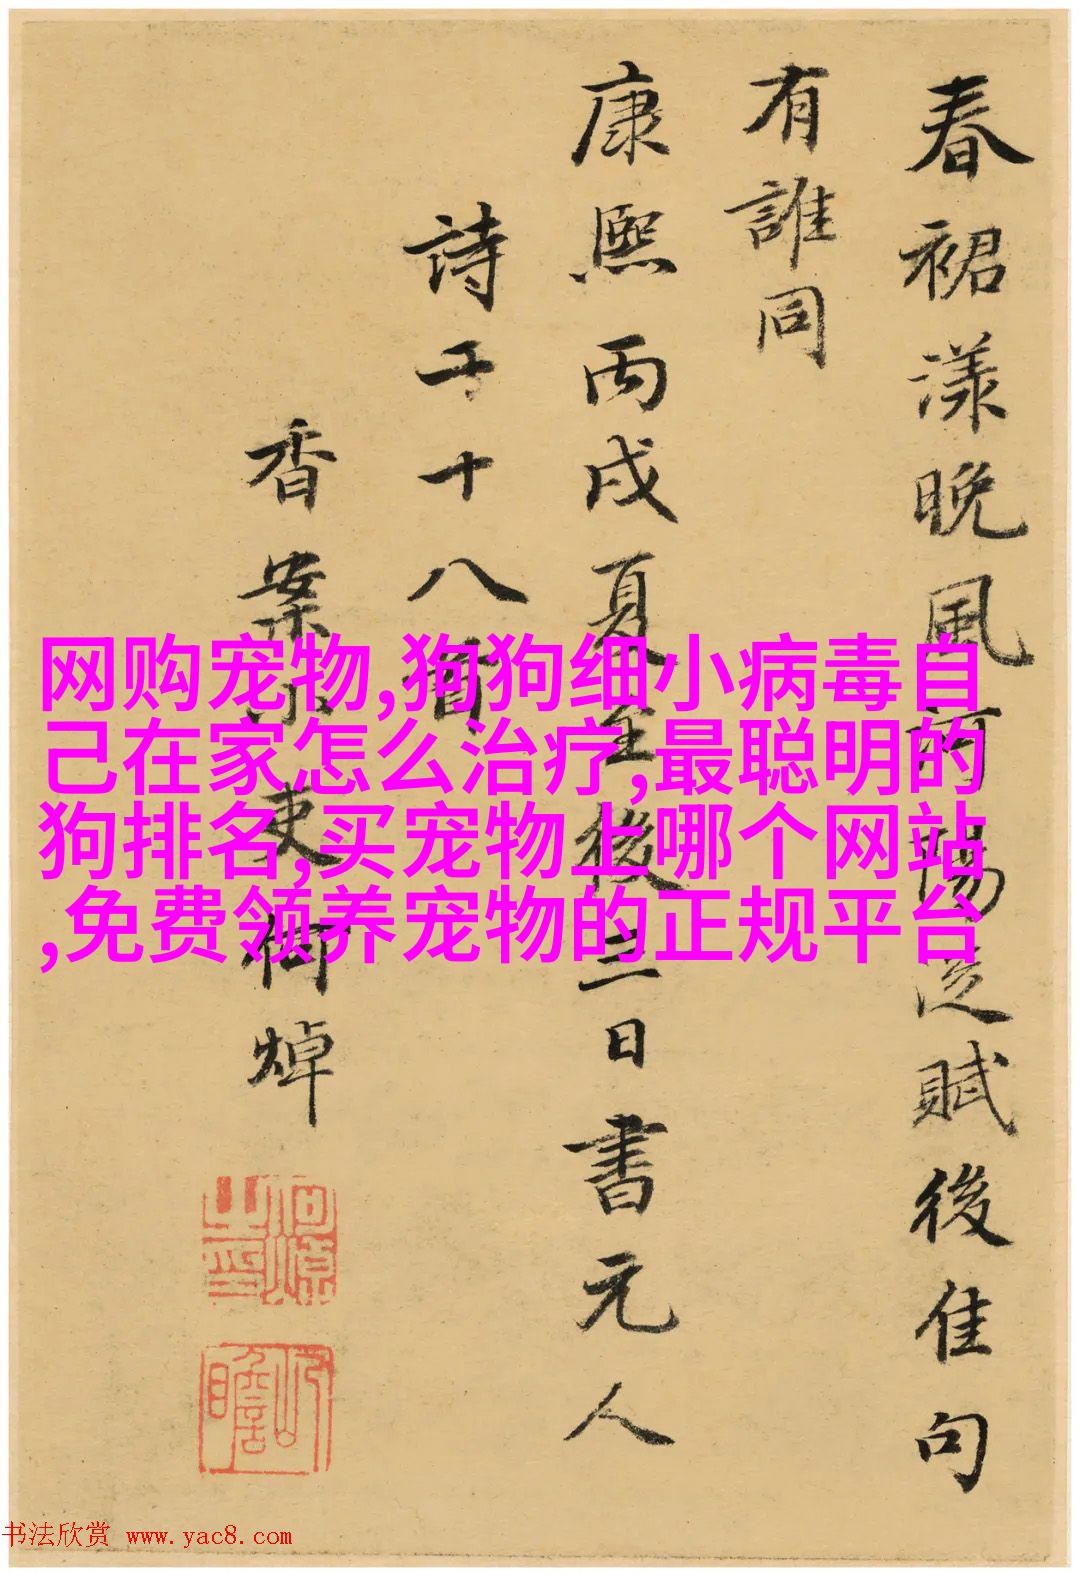 春裙漾晚風河陽賦後佳句
有誰同
康熙丙戌夏至後三日書元人
詩十八首
香案小吏何焯
何焯之印
屺瞻
网购宠物,狗狗细小病毒自
己在家怎么治疗,最聪明的
狗排名,买宠物上哪个网站
,免费领养宠物的正规平台
书法欣赏 www.yac8.com